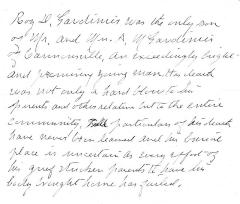 Roy D. Gardinier was the only son
of Mr. and Mrs. A. M Gardinier
of Cannonville, an exceedingly bright
and promising young man. His death
was not only a hard blow to his
parents and other relatives but to the entire
community, particulars of his death
have never been learned and his burial
place is uncertain as every effort of
his grief stricken parents to have his
body brought home has failed.